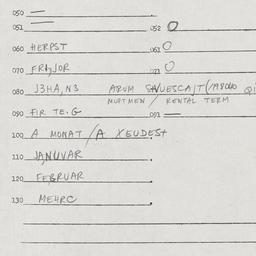 050 —
051 052 O
060 HERPST 061 O
070 FRIJJOR 071 O
080 J3HA, N3 ABUM
MURTMEN / RENTAL TERM
090 FIR TE.G 091 —
100 A MONAT / A XEUDEST
110 JANUVAR
120 FEBRUAR
130 MEHRC